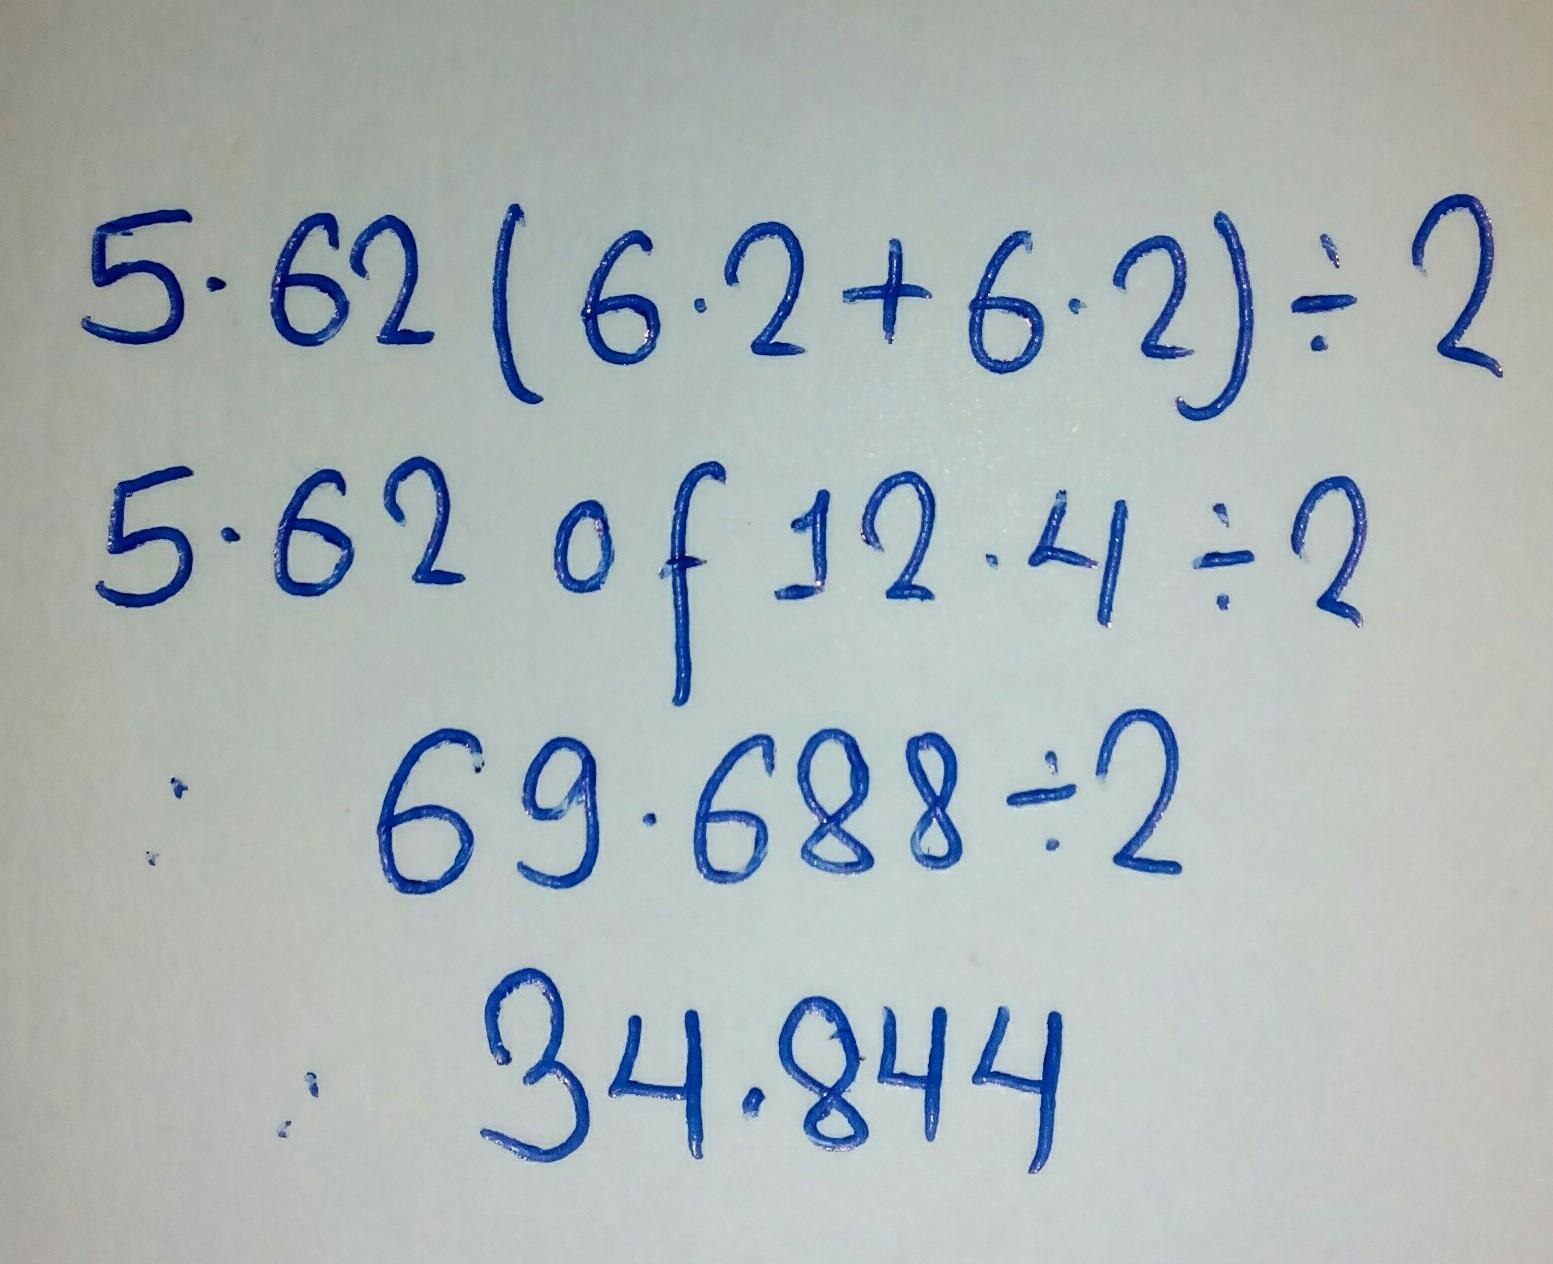 5.62(6.2+6.2)÷2
5.62 of 12.4÷2
: 69.688÷2
: 34.844